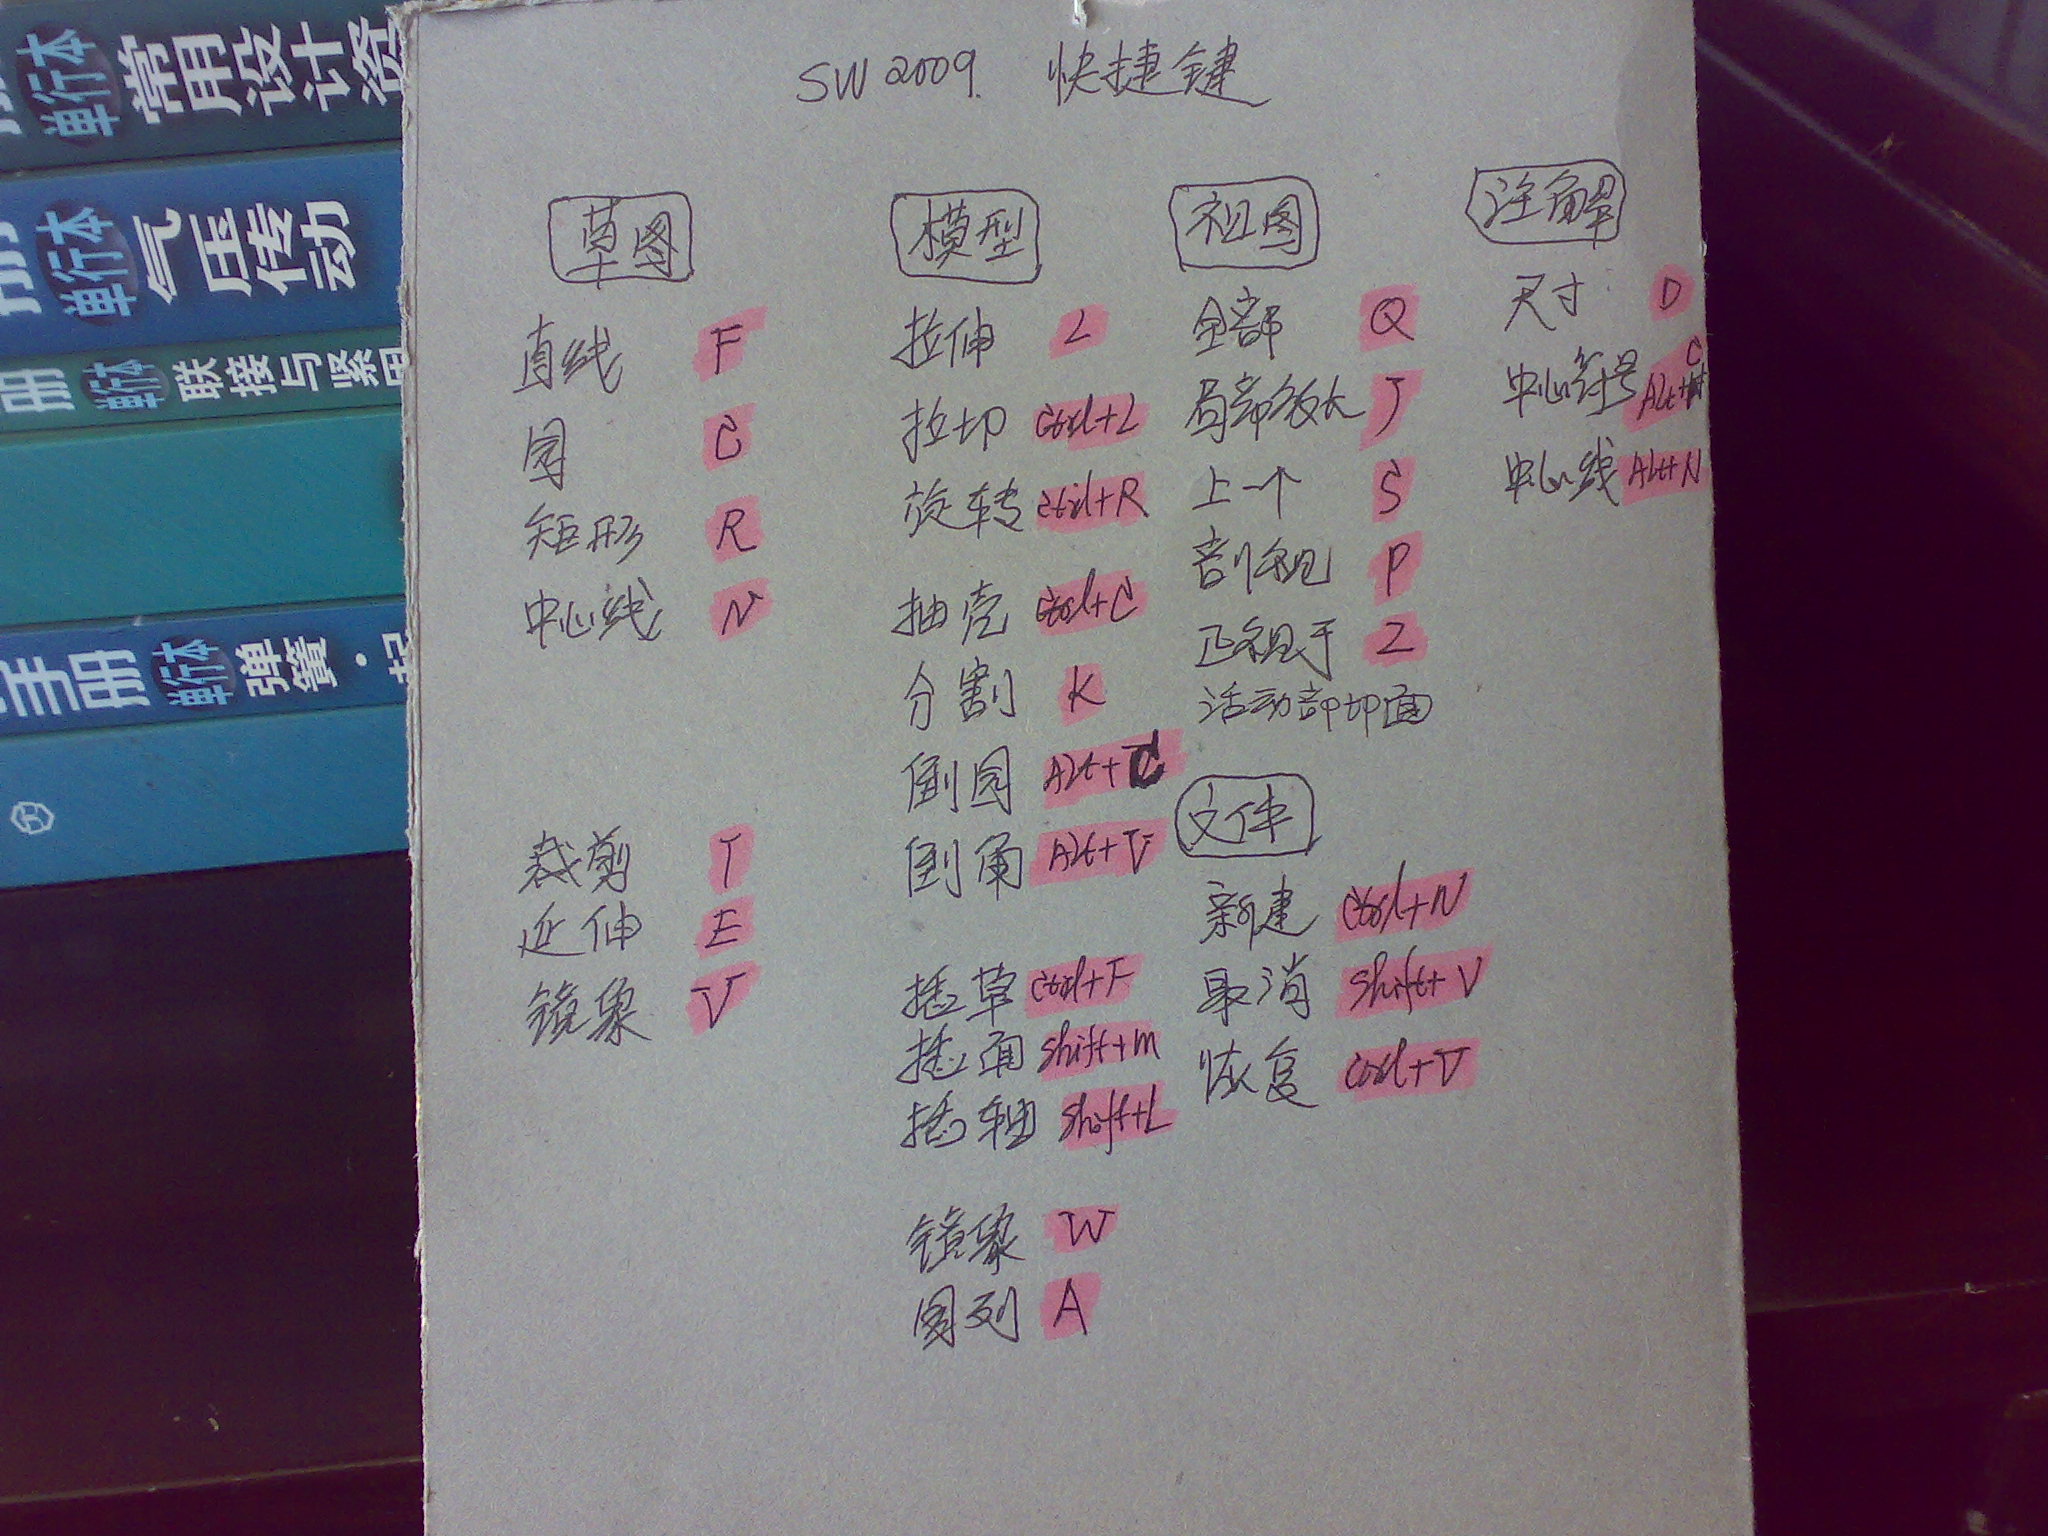 SW 2009. 快捷键
草图
直线 F
园 C
矩形 R
中心线 N
裁剪 T
延伸 E
镜象 V
模型
拉伸 L
拉切 Ctrl+L
旋转 Ctrl+R
抽壳 Ctrl+C
分割 K
倒园 Alt+C
倒角 Alt+V
插草 Ctrl+F
插面 Shift+m
插轴 Shift+L
镜象 W
图列 A
视图
全部 Q
局部放大 J
上一个 S
剖视 P
正视于 Z
活动剖切面
文件
新建 Ctrl+N
取消 Shift+V
恢复 Ctrl+V
注解
尺寸 D
中心符号 Alt+C
中心线 Alt+N
单行本 常用设计资
单行本 气压传动
册 单行本 联接与紧
手册 单行本 弹簧·起